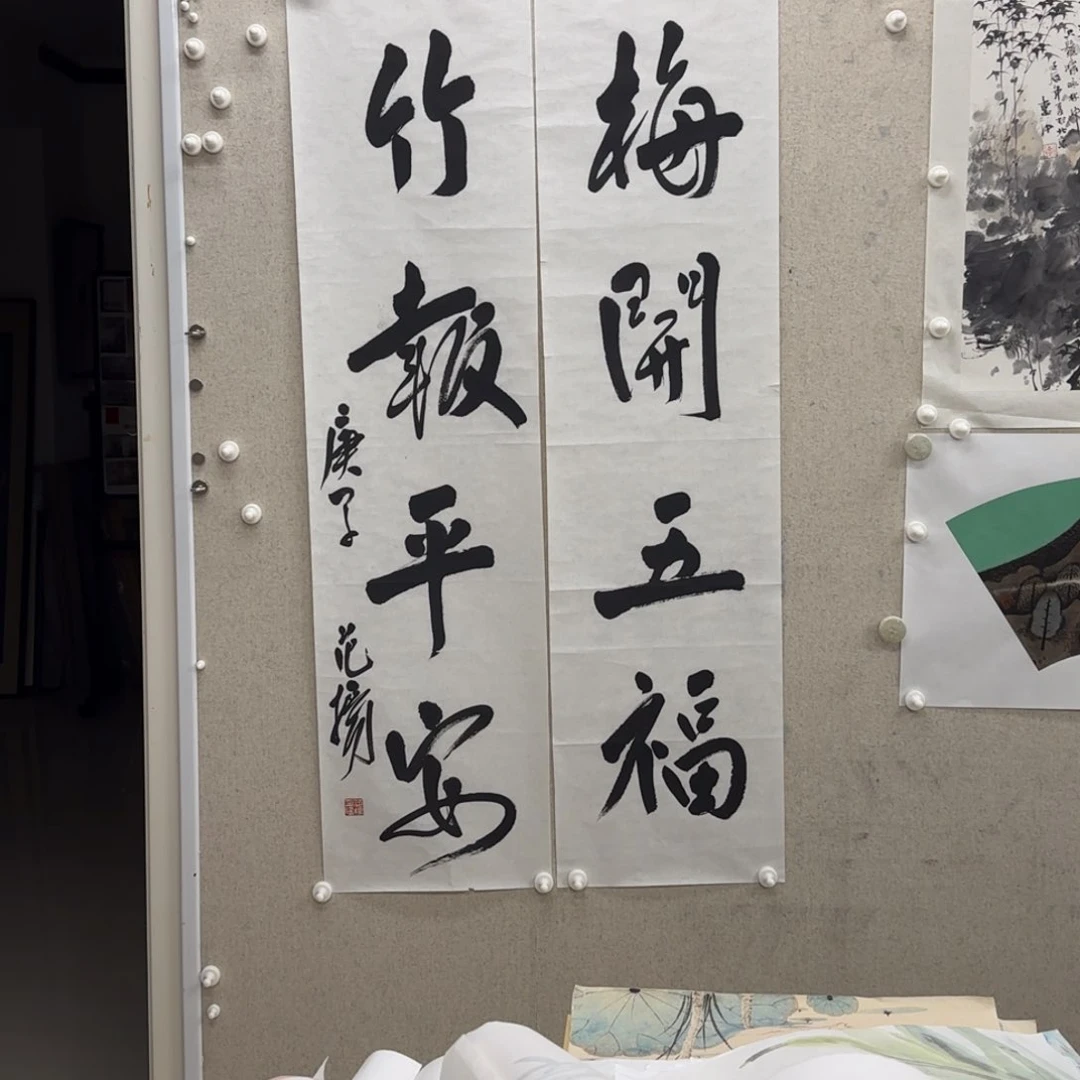 梅開五福
竹報平安
庚子
范墉